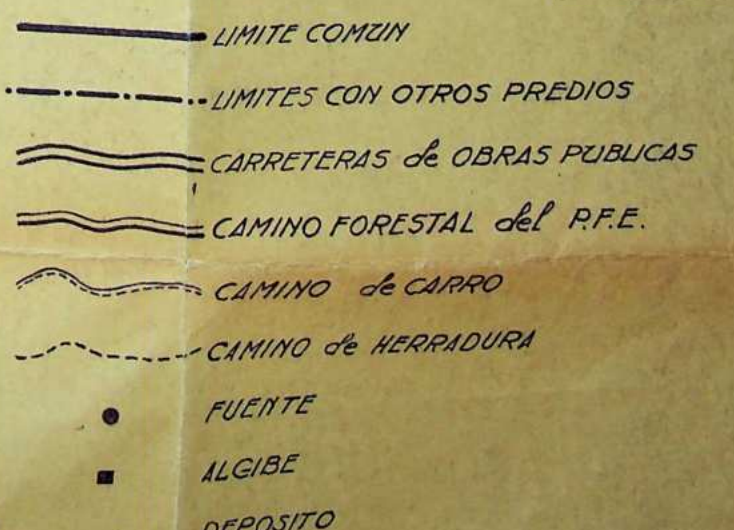 LIMITE COMUN
LIMITES CON OTROS PREDIOS
CARRETERAS de OBRAS PUBLICAS
CAMINO FORESTAL del P.F.E.
CAMINO de CARRO
CAMINO de HERRADURA
FUENTE
ALGIBE
DEPOSITO